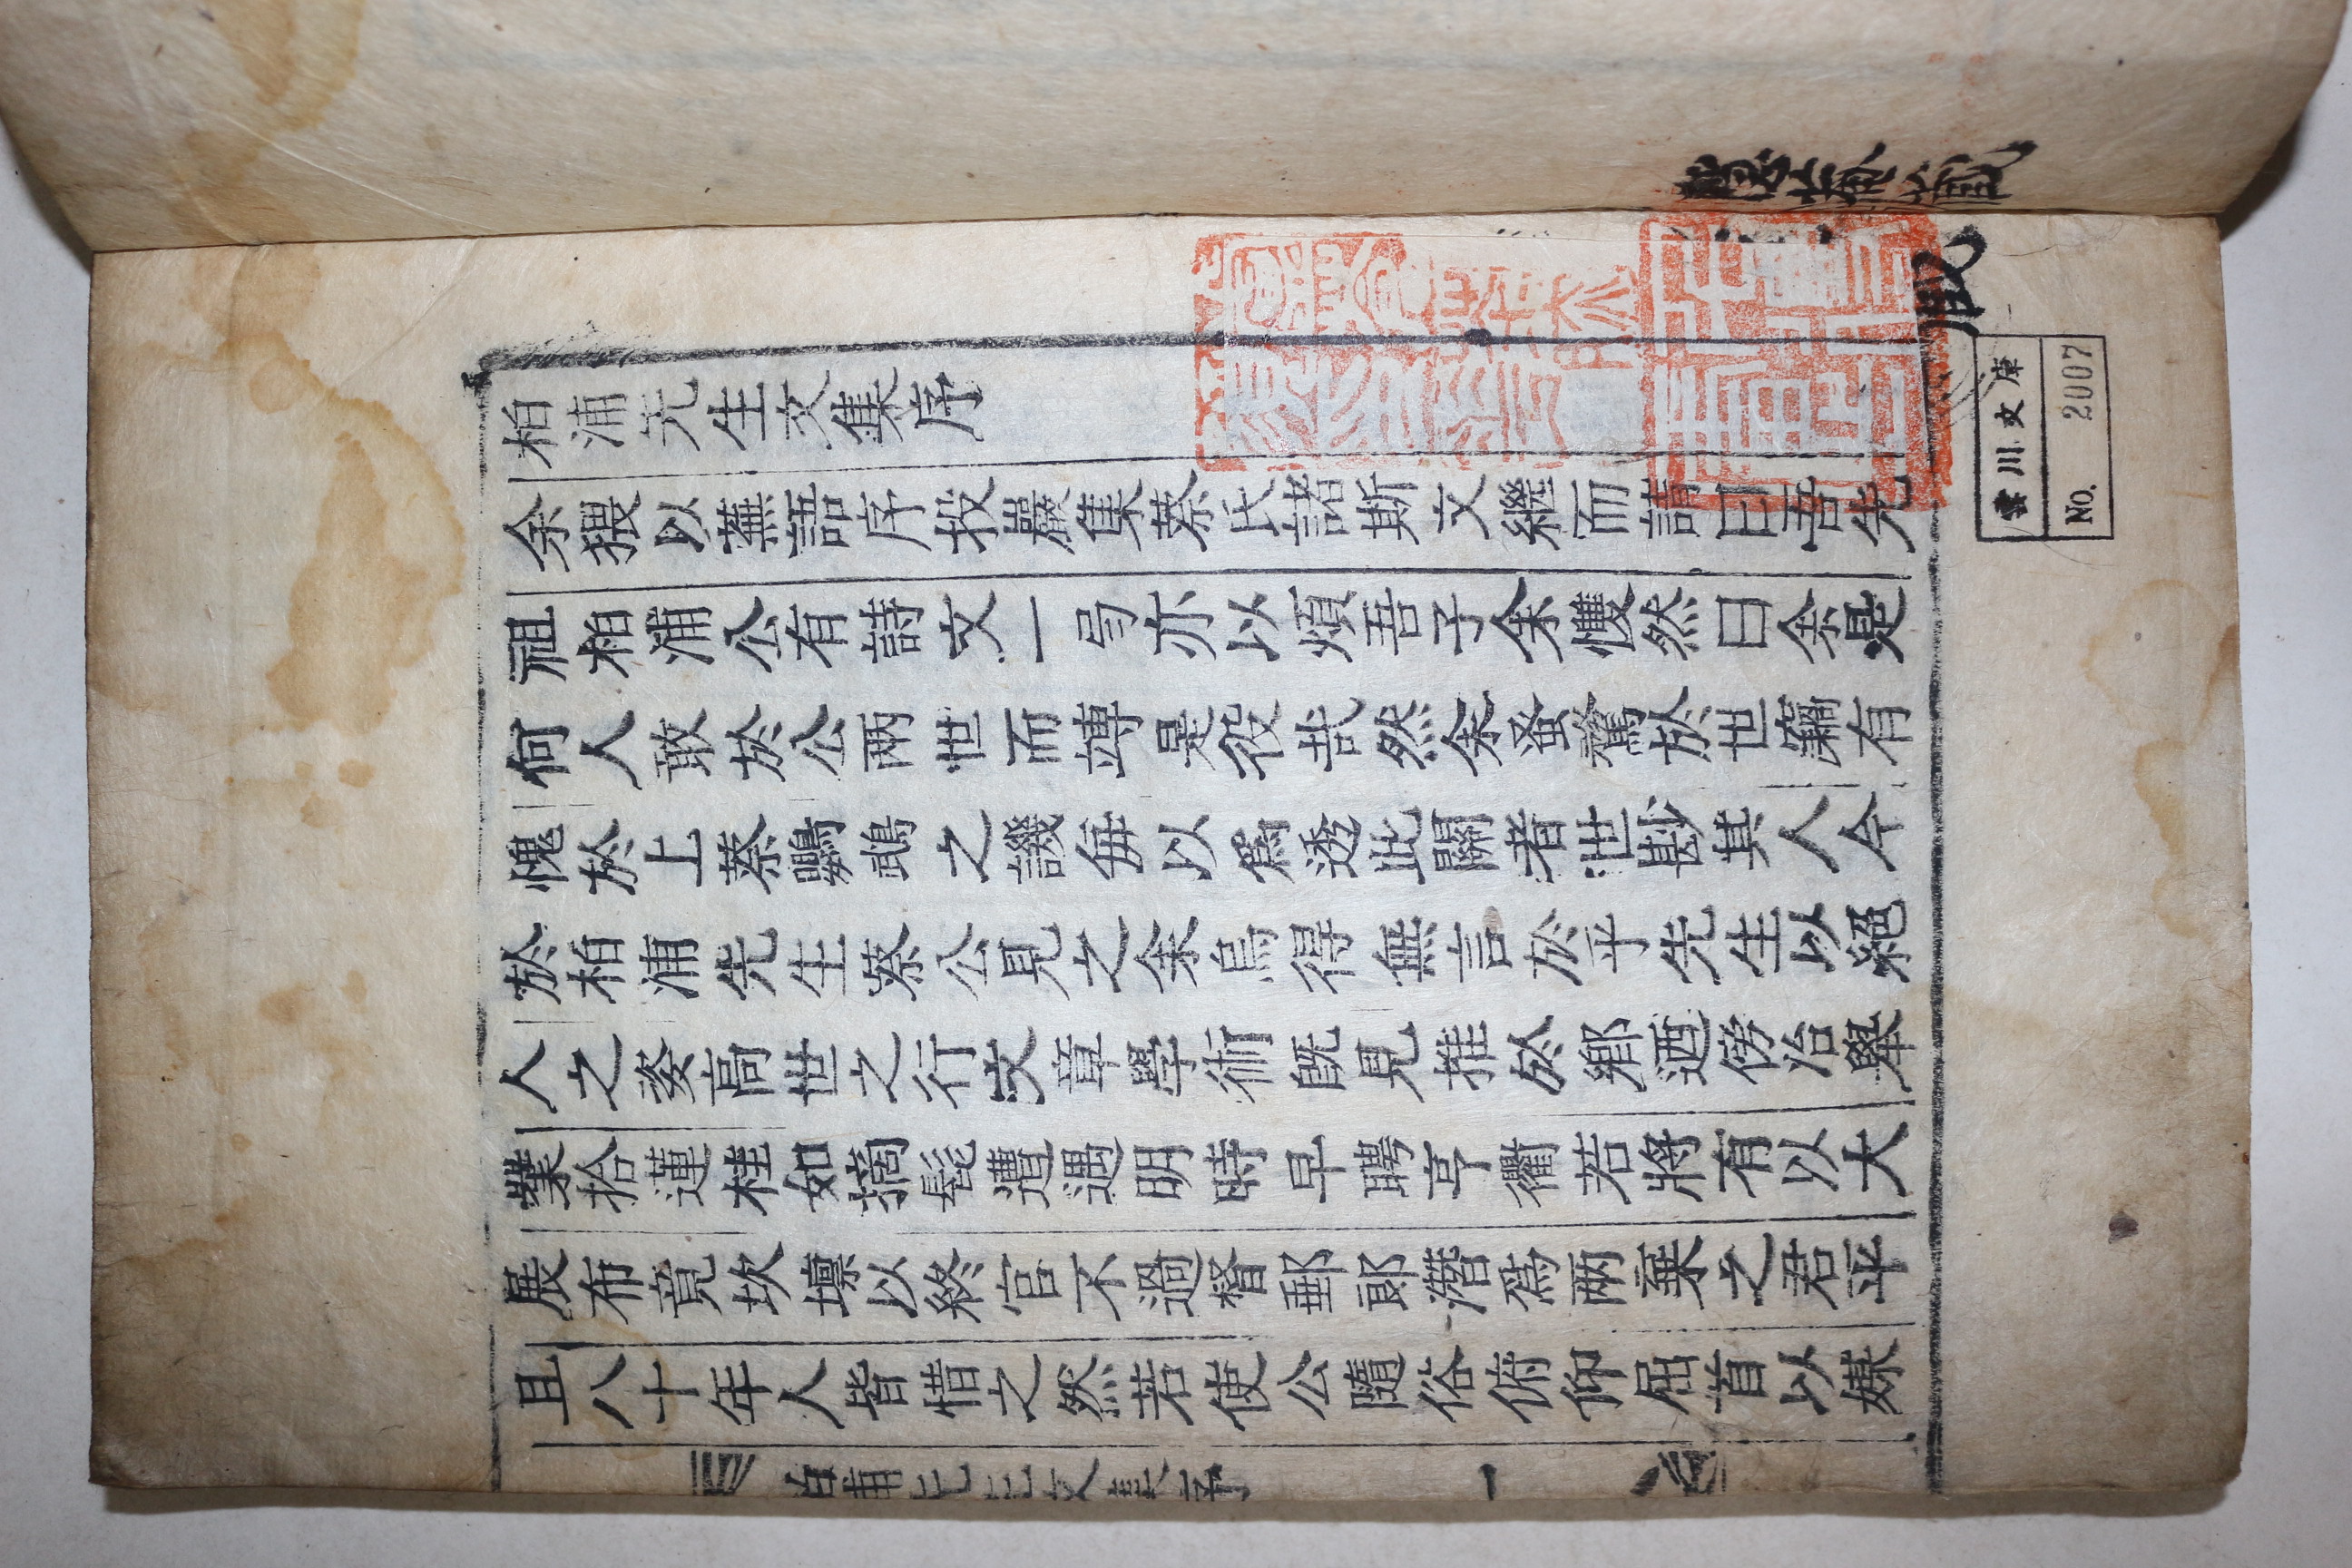 柏浦先生文集序
余猥以蕪語序投巖集蔡氏諸斯文繼而請曰吾先
祖柏浦公有詩文一弓亦以煩吾子余戄然曰余是
何人敢於公兩世而竱是役哉然余蚤驚於世竊有
愧於上蔡鸚鵡之譏每以爲透此關者世尠其人今
於柏浦先生蔡公見之余烏得無言於乎先生以絕
人之姿高世之行文章學術旣見推於鄕遒傍治擧
業拾蓮桂如摘髭遭遇明時早聘亨衢若將有以大
展布竟坎壈以終官不過督郵郞潛爲兩棄之君平
且八十年人皆惜之然若使公隨俗俯仰屈首以媒
柏浦先生文集序 一
雲川文庫
No. 2007
藏